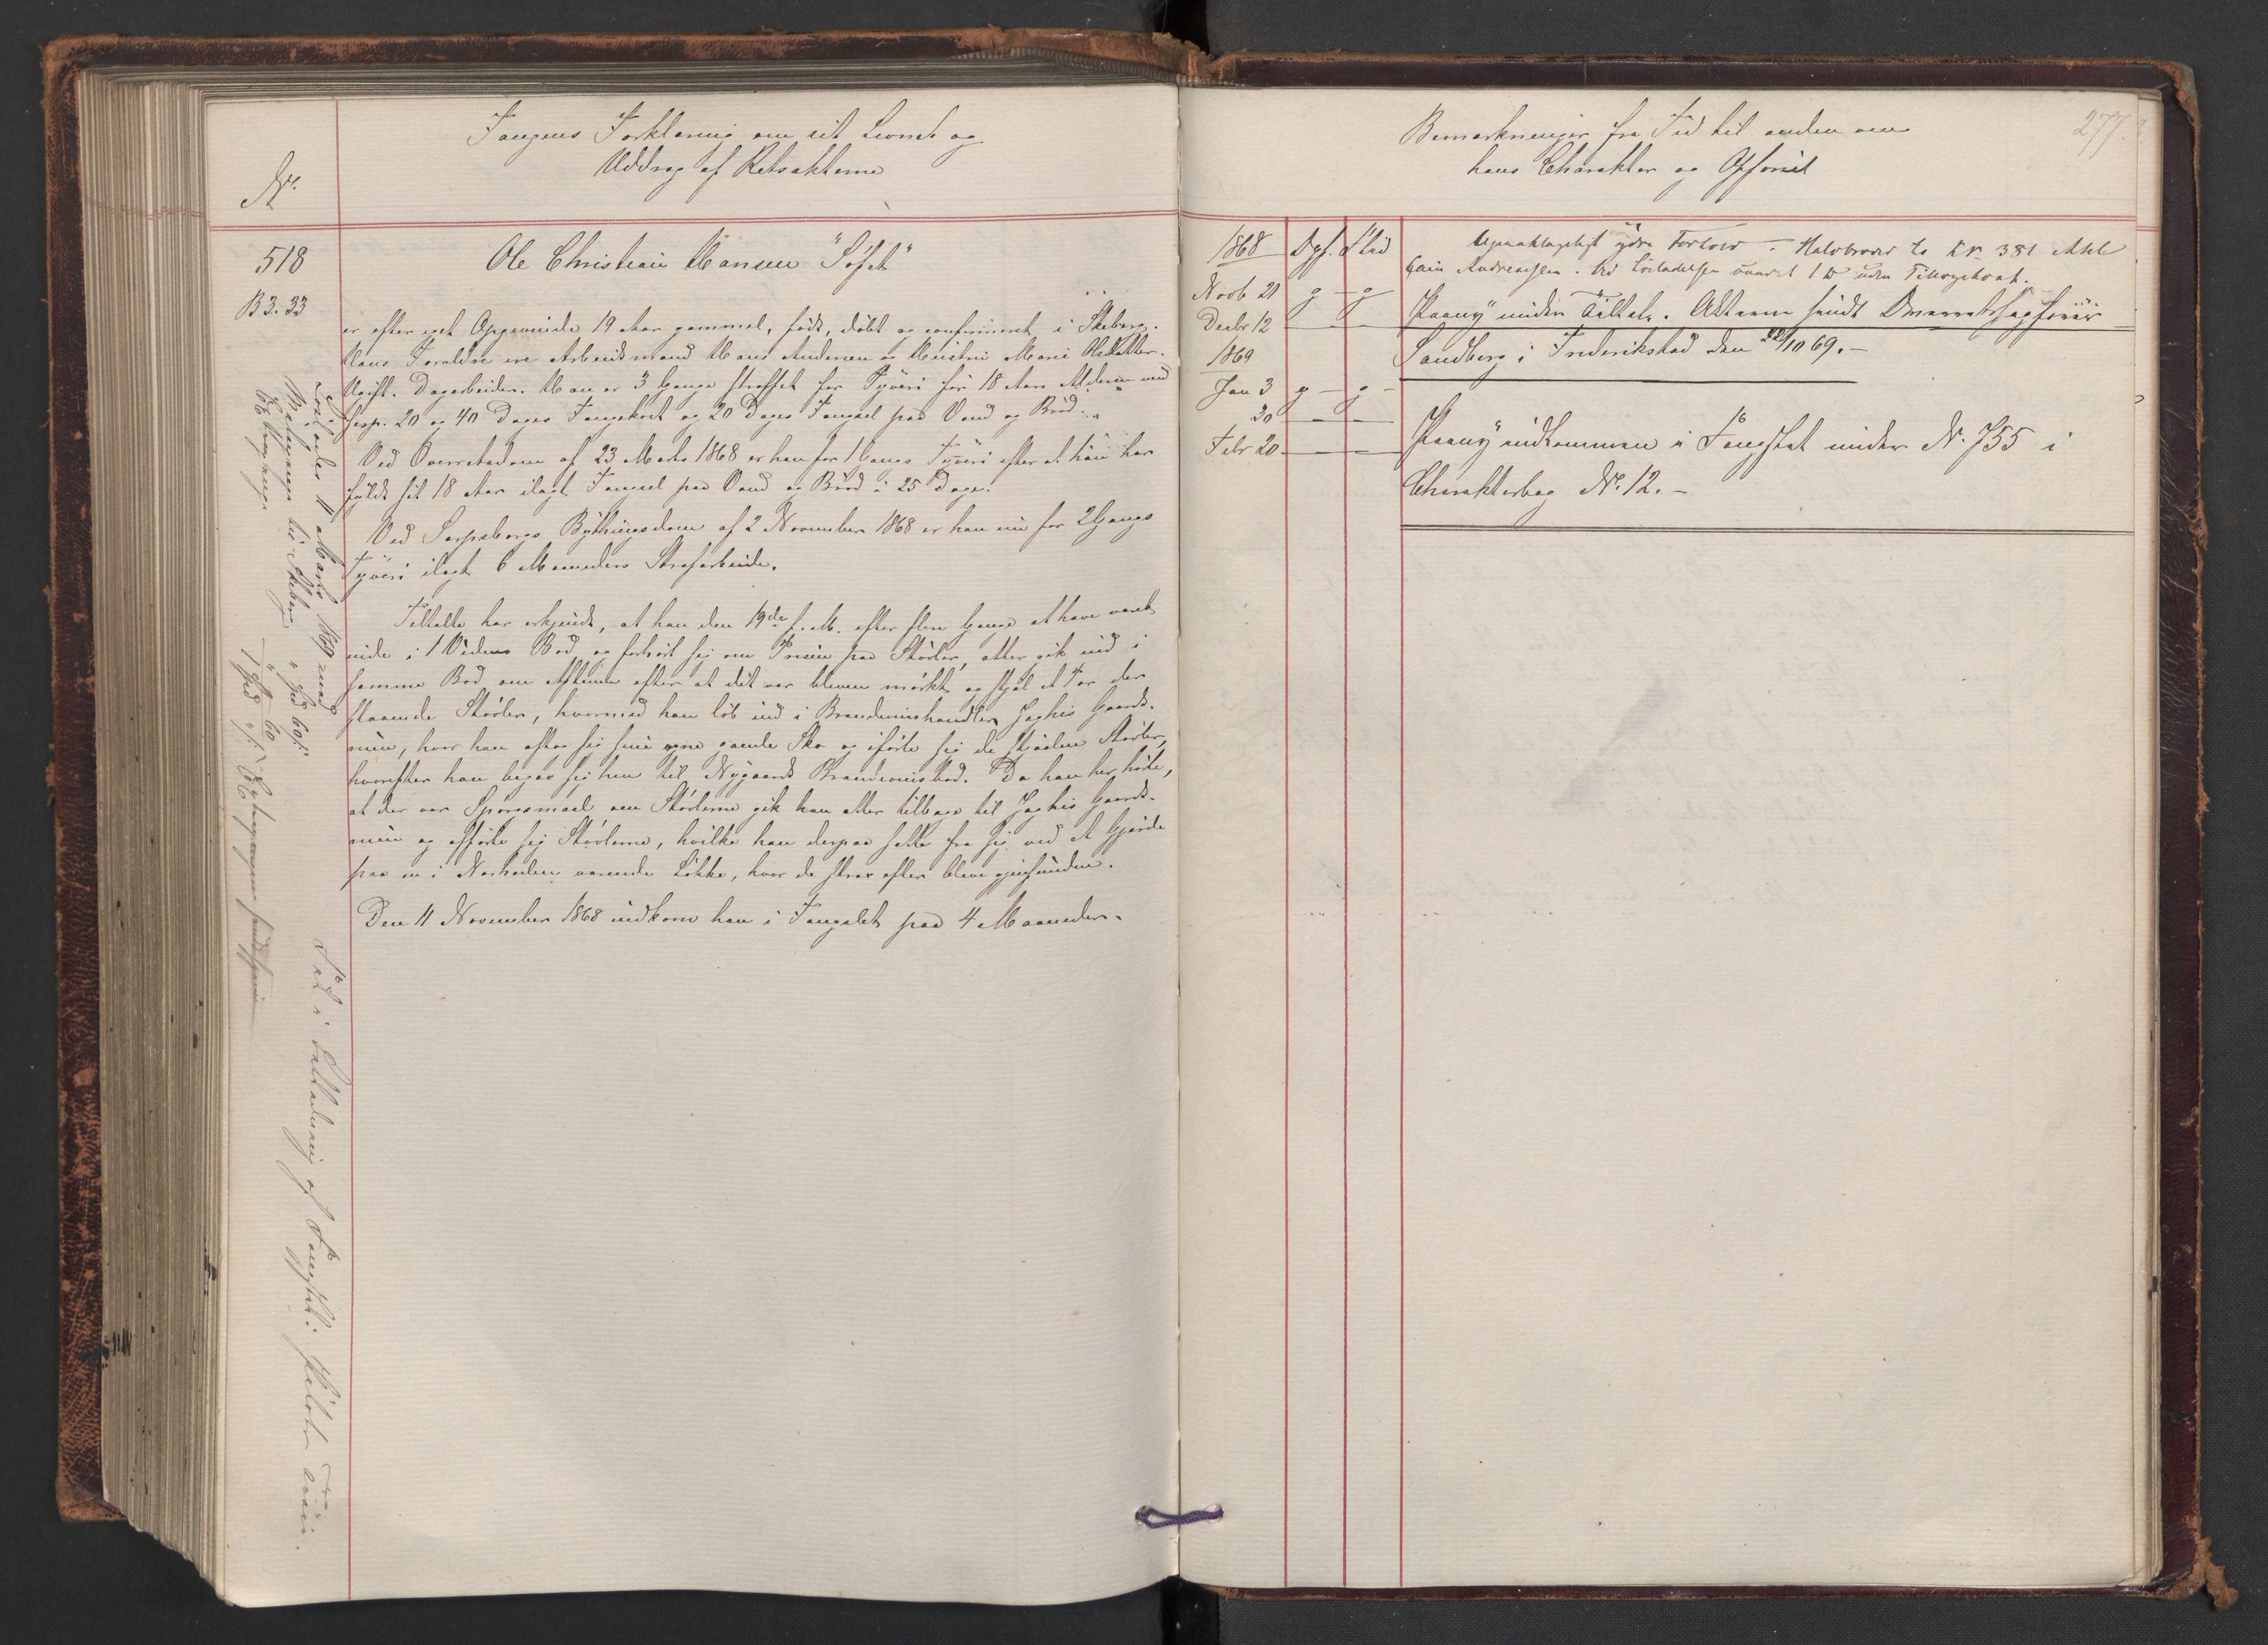 Fangens Forklaring om sit Levnet og
Uddrag af Retsakterne
No.
518
B 3. 33
Ole Christian Hansen "Sofit"
er efter eget Opgivende 19 Aar gammel, født, døbt og confirmeret i Skeberg.
Hans Forældre ere Arbeidsmand Hans Andersen og Hustru Marie Olsdatter.
Ugift. Dagarbeider. Han er 3 Gange straffet for Tyveri før 18 Aars Alderen med
resp. 20 og 40 Dages Fangekost og 20 Dages Fængsel paa Vand og Brød.
Ved Overretsdom af 23 Marts 1868 er han for 1 Gangs Tyveri efter at han har
fyldt sit 18 Aar ilagt Fængsel paa Vand og Brød i 25 Dage.
Ved Sarpsborgs Bythingsdom af 2 November 1868 er han nu for 2 Gangs
Tyveri ilagt 6 Maaneders Strafarbeide.
Tiltalte har erkjendt, at han den 19de f. M. efter flere Gange at have været
inde i Bod og forhørt sig om Prisen paa Støvler, atter gik ind i
samme Bod om Aftenen efter at det var bleven mørkt og stjal et Par der
staaende Støvler, hvormed han løb ind i Brændevinshandler Gaards-
rum, hvor han aftog sig sine egne gamle Sko og iførte sig de stjaalne Støvler,
hvorefter han begav sig hen til Nygaards Brændevinsbod. Da han her hørte,
at der var Spørgsmaal om Støvlerne gik han atter tilbage til Gaards-
rum og afførte sig Støvlerne, hvilke han derpaa satte fra sig ved et Gjærde
paa en i Nærheden værende Løkke, hvor de strax efter bleve gjenfundne.
Den 11 November 1868 indkom han i Fængslet paa 4 Maaneder.
Løsladt 11 Marts 1869 med
Reisepenge til Skeberg " Spd 60 s.
Oplagspenge
1 Spd
Født i
Bemærkninger fra Tid til anden om
hans Charakter og Opførsel
277.
1868 Opf. Flid
Novb 21 g – g
Decbr 12 — —
1869
Jan 3 g – g
30 — —
Febr 20 — —
Upaaklageligt ydre Forhold. Halvbroder to Nr 381
Andreassen. Ved Løsladelsen
Paany under Tiltale. Akterne sendt Overretssagfører
Sandberg i Frederikstad den 22/10 69. –
Paany indkommen i Fængslet under No. 755 i
Charakterbog No. 12. –